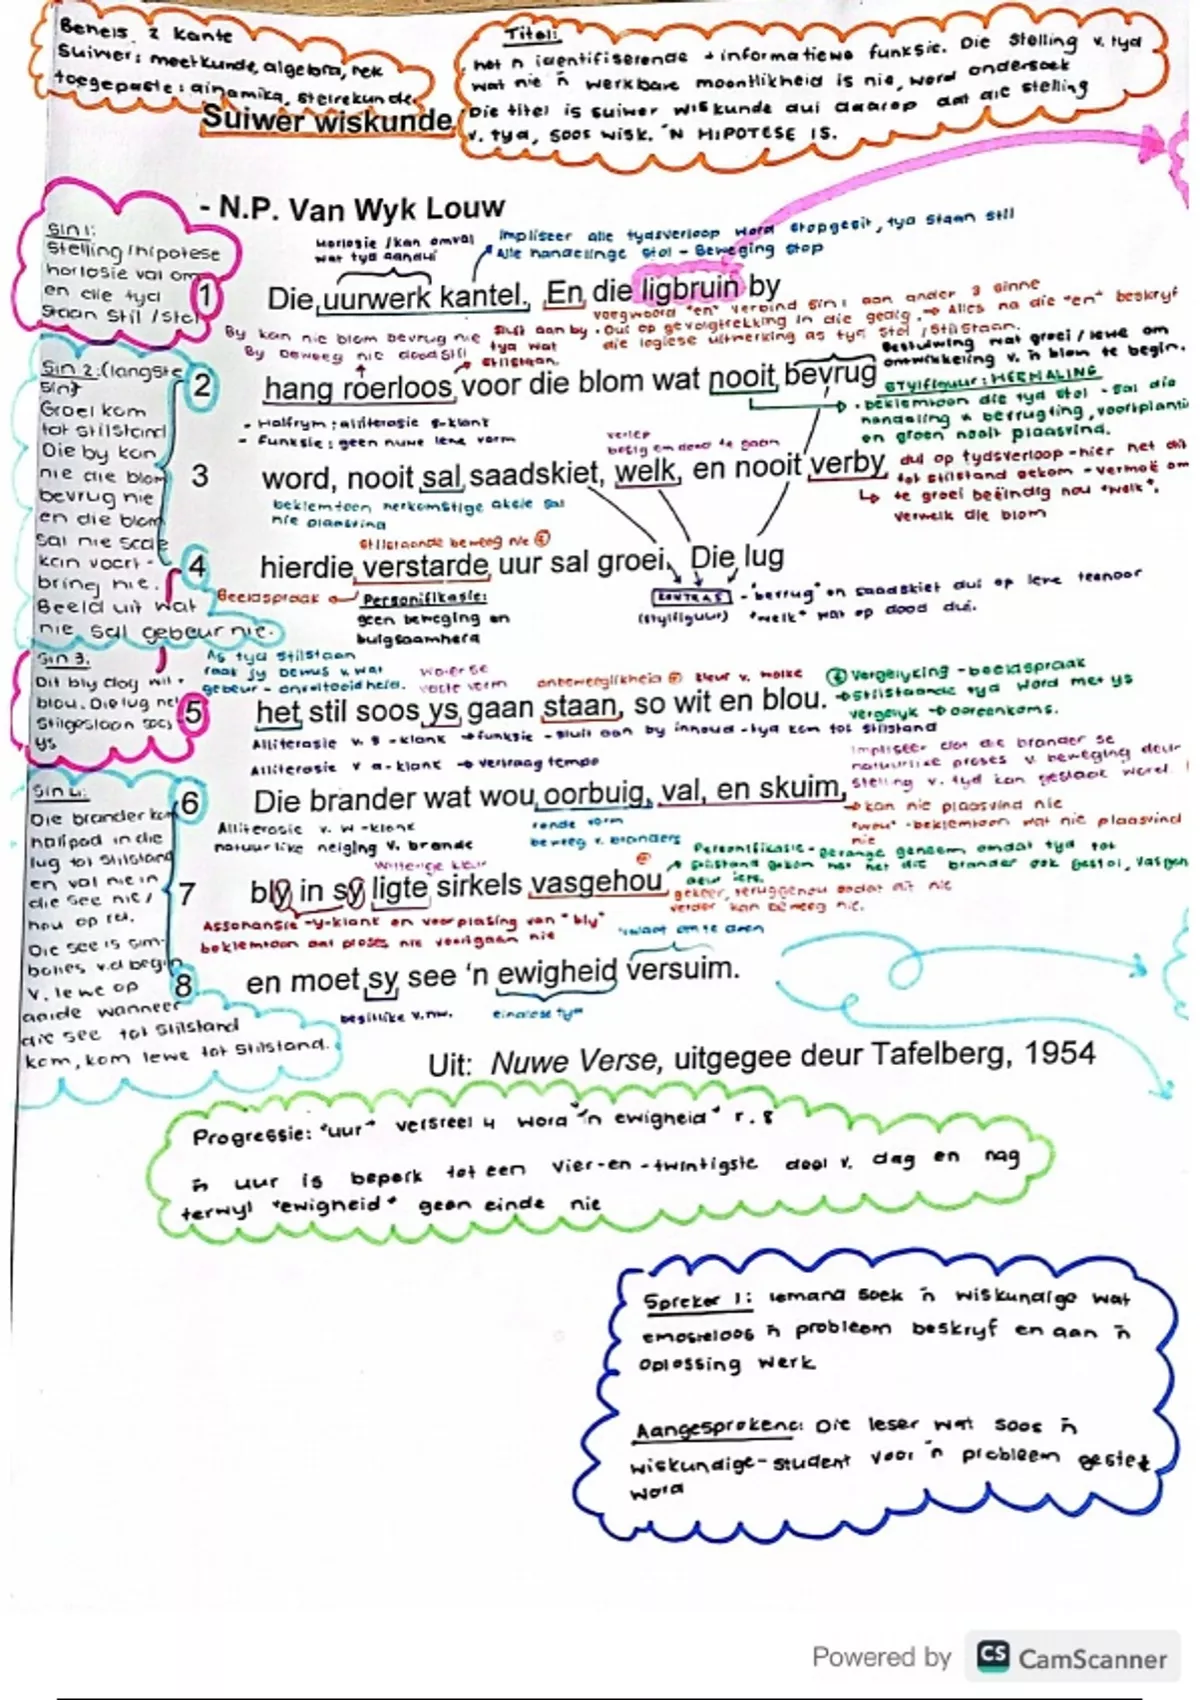 Behels 2 kante
Suiwer: meetkunde, algebra, rek
toegepaste: dinamika, sterrekunde.
Titel:
het 'n identifiserende + informatiewe funksie. Die stelling v. tyd
wat nie 'n werkbare moontlikheid is nie, word ondersoek
Die titel is suiwer wiskunde dui daarop dat die stelling
v. tyd, soos wisk. 'N HIPOTESE IS.
Suiwer wiskunde
- N.P. Van Wyk Louw
Sin 1:
Stelling/hipotese
horlosie val om
en die tyd
staan stil/stol
Horlosie/kan omval
wat tyd aandui
Impliseer alle tydsverloop word stopgesit, tyd staan stil
Alle handelinge stol - Beweging stop
1 Die uurwerk kantel. En die ligbruin by
voegwoord "en" verbind sin 1 aan ander 3 sinne
Dui op gevolgtrekking in die gedig. → Alles na die "en" beskryf
die logiese uitwerking as tyd stol/stilstaan.
By kan nie blom bevrug nie
By beweeg nie doodstil
Sluit aan by
tyd wat
stilstaan.
Bestuiwing wat groei/lewe om
ontwikkeling v. 'n blom te begin.
Sin 2: (langste
sin)
Groei kom
tot stilstand
Die by kan
nie die blom
bevrug nie
en die blom
sal nie sade
kan voort-
bring nie.
Beeld uit wat
nie sal gebeur nie.
2 hang roerloos voor die blom wat nooit bevrug
Stylfiguur: HERHALING
beklemtoon die tyd stol - sal die
handeling v. bevrugting, voortplanti
en groei nooit plaasvind.
- Halfrym; alliterasie s-klank
- Funksie: geen nuwe lewe vorm
verlep
besig om dood te gaan
3 word, nooit sal saadskiet, welk, en nooit verby
dui op tydsverloop - hier net dit
tot stilstand gekom - vermoë om
te groei beëindig nou "welk",
verwelk die blom
beklemtoon herkomstige aksie sal
nie plaasvind
Stilstaande beweeg nie
4 hierdie verstarde uur sal groei. Die lug
Beeldspraak
Personifikasie:
geen beweging en
buigsaamheid
KONTRAS
(stylfiguur)
- "bevrug" en saadskiet dui op lewe teenoor
"welk" wat op dood dui.
Sin 3.
Dit bly dag wit +
blou. Die lug net
stilgeslaan soos
ys
As tyd stilstaan
raak sy bewus v. wat
gebeur - onveltooidheid.
waterse
vaste vorm
onbeweeglikheid
kleur v. wolke
Vergelyking - beeldspraak
→ stilstaande tyd word met ys
vergelyk → ooreenkoms.
5 het stil soos ys gaan staan, so wit en blou.
Alliterasie v. s-klank → funksie - sluit aan by inhoud - tyd kom tot stilstand
Alliterasie v a-klank → vertraag tempo
Impliseer dat die brander se
natuurlike proses v. beweging deur
stelling v. tyd kan geslaak word.
Sin 4:
Die brander kom
halfpad in die
lug tot stilstand
en val nie in
die see nie/
hou op rol.
Die see is sim-
bolies v.d begin
v. lewe op
aarde wanneer
die see tot stilstand
kom, kom lewe tot stilstand.
6 Die brander wat wou oorbuig, val, en skuim,
→ kan nie plaasvind nie
"wou" - beklemtoon wat nie plaasvind
nie
Alliterasie v. w-klank
natuurlike neiging v. brande
ronde vorm
beweeg v. branders
Personifikasie - gevange geneem omdat tyd tot
stilstand gekom het het die brander ook gestol, vasgen
deur iets.
7 bly in sy ligte sirkels vasgehou
gekeer, teruggehou sodat dit nie
verder kan beweeg nie.
Assonansie - y-klank en voorplasing van "bly"
beklemtoon dat proses nie voortgaan nie
8 en moet sy see 'n ewigheid versuim.
besitlike v.nw.
eindlose tyd
Uit: Nuwe Verse, uitgegee deur Tafelberg, 1954
Progressie: "uur" versreël 4 word "'n ewigheid" r. 8
'n uur is beperk tot een vier-en-twintigste deel v. dag en nag
terwyl "ewigheid" geen einde nie
Spreker 1: Iemand soek 'n wiskundige wat
emosieloos 'n probleem beskryf en aan 'n
oplossing werk
Aangesprokene: Die leser wat soos 'n
wiskundige-student voor 'n probleem gestel
word
Powered by CS CamScanner